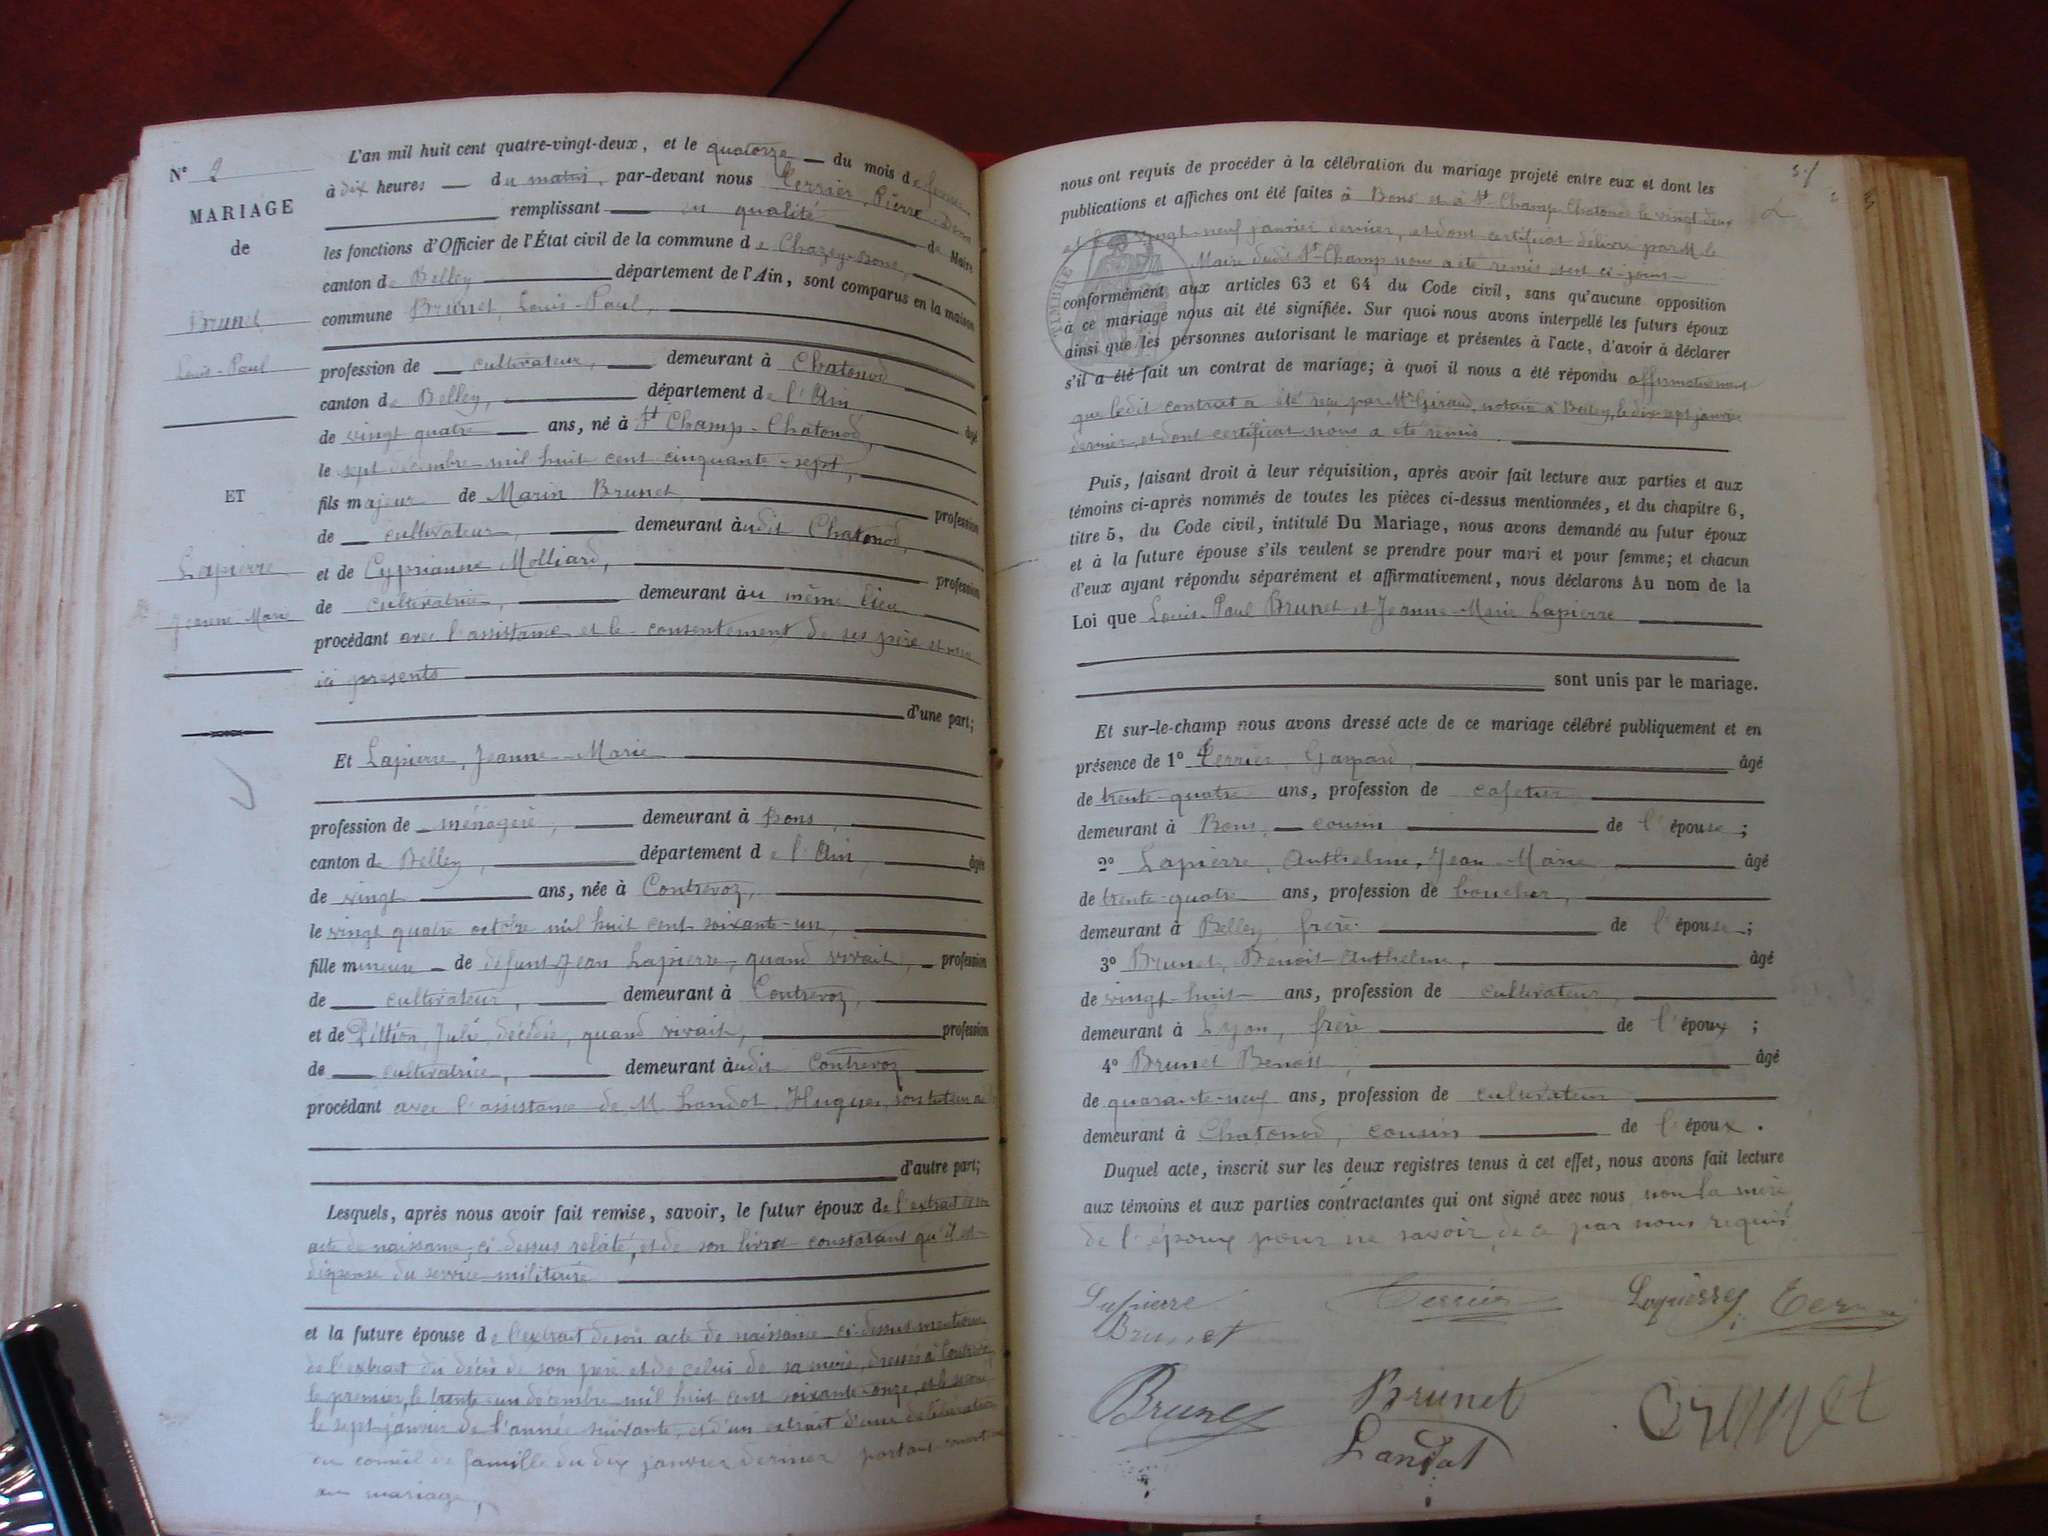 N° 2
MARIAGE
de
Brunet
Louis-Paul
ET
Lapierre
Jeanne Marie
L'an mil huit cent quatre-vingt-deux, et le quatorze du mois de
à dix heures du matin, par-devant nous Terrier, Pierre-
remplissant en qualité de Maire
les fonctions d'Officier de l'État civil de la commune de Chazey-Bons,
canton de Belley département de l'Ain, sont comparus en la maison
commune Brunet, Louis-Paul,
profession de cultivateur, demeurant à Chatonod
canton de Belley, département de l'Ain âgé
de vingt quatre ans, né à St Champ-Chatonod,
le sept décembre mil huit cent cinquante-sept,
fils majeur de Marin Brunet, profession
de cultivateur, demeurant audit Chatonod,
et de Cyprianne Molliard, profession
de cultivatrice, demeurant au même lieu
procédant avec l'assistance et le consentement de ses père et mère
ici présents
d'une part;
Et Lapierre, Jeanne-Marie
profession de ménagère, demeurant à Bons,
canton de Belley, département de l'Ain, âgée
de vingt ans, née à Contrevoz,
le vingt quatre octobre mil huit cent soixante-un,
fille mineure de défunt Jean Lapierre, quand vivait, profession
de cultivateur, demeurant à Contrevoz,
et de Pittion, Julie, décédée, quand vivait, profession
de cultivatrice, demeurant audit Contrevoz
procédant avec l'assistance de M. Landot, Hugues, son tuteur
d'autre part;
Lesquels, après nous avoir fait remise, savoir, le futur époux de l'extrait de son
acte de naissance, ci-dessus relaté, et de son livret constatant qu'il est
dispensé du service militaire
et la future épouse de l'extrait de son acte de naissance ci-dessus mentionné
de l'extrait du décès de son père et de celui de sa mère, dressés à Contrevoz,
le premier, le trente-un décembre mil huit cent soixante-onze, et le second
le sept janvier de l'année suivante, et d'un extrait d'une délibération
du conseil de famille du dix janvier dernier portant
au mariage,
nous ont requis de procéder à la célébration du mariage projeté entre eux et dont les
publications et affiches ont été faites à Bons et à St Champ-Chatonod le vingt-deux
et le vingt-neuf janvier dernier, et dont certificat délivré par M. le
Maire dudit St-Champ nous a été remis est ci-joint
TIMBRE
conformément aux articles 63 et 64 du Code civil, sans qu'aucune opposition
à ce mariage nous ait été signifiée. Sur quoi nous avons interpellé les futurs époux
ainsi que les personnes autorisant le mariage et présentes à l'acte, d'avoir à déclarer
s'il a été fait un contrat de mariage; à quoi il nous a été répondu affirmativement
que ledit contrat a été reçu par Me Giraud, notaire à Belley, le dix-sept janvier
dernier, et dont certificat nous a été remis.
Puis, faisant droit à leur réquisition, après avoir fait lecture aux parties et aux
témoins ci-après nommés de toutes les pièces ci-dessus mentionnées, et du chapitre 6,
titre 5, du Code civil, intitulé Du Mariage, nous avons demandé au futur époux
et à la future épouse s'ils veulent se prendre pour mari et pour femme; et chacun
d'eux ayant répondu séparément et affirmativement, nous déclarons Au nom de la
Loi que Louis-Paul Brunet et Jeanne-Marie Lapierre
sont unis par le mariage.
Et sur-le-champ nous avons dressé acte de ce mariage célébré publiquement et en
présence de 1° Terrier, Gaspard, âgé
de trente-quatre ans, profession de cafetier
demeurant à Bons, cousin de l'épouse;
2° Lapierre, Anthelme, Jean-Marie âgé
de trente-quatre ans, profession de boucher,
demeurant à Belley frère de l'épouse;
3° Brunet, Benoit Anthelme, âgé
de vingt-huit ans, profession de cultivateur,
demeurant à Lyon, frère de l'époux;
4° Brunet Benoit, âgé
de quarante-neuf ans, profession de cultivateur
demeurant à Chatonod, cousin de l'époux.
Duquel acte, inscrit sur les deux registres tenus à cet effet, nous avons fait lecture
aux témoins et aux parties contractantes qui ont signé avec nous, non la mère
de l'époux pour ne savoir, de ce par nous requis
Lapierre Terrier Lapierre
Brunet
Brunet Brunet
Landot